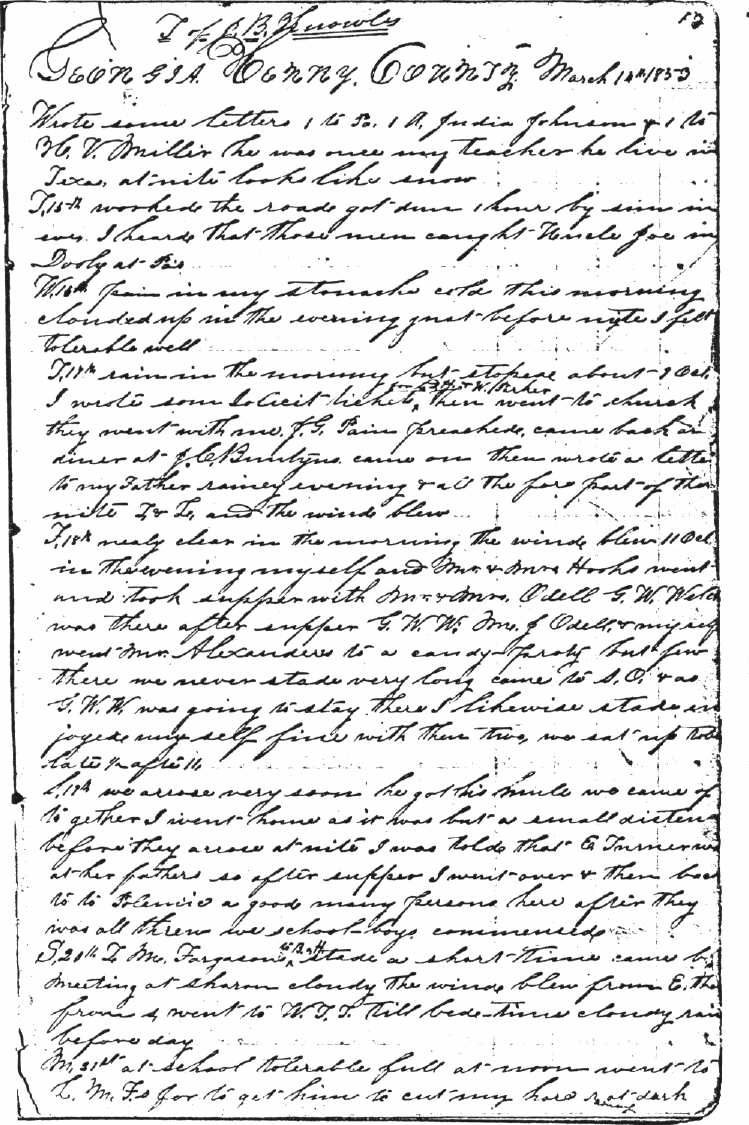 J. B. Knowles
GEORGIA. HENRY. COUNTY. March 14th 1853
Wrote some letters 1 to 1 A, Judia Johnson & 1 to
H. V. Miller he was once my teacher he live in
Texas, at nite looks like snow
T, 15th worked the roade got dun 1 hour by sun in
eve, I hearde that those men caught Uncle Joe in
Dooly at
W, 16th Pain in my stomache cold this morning
clouded up in the evening just before nite I felt
tolerable well
T, 17th rain in the morning but stopede about 9 Oct,
& W. Parker
I wrote som tickets, then went to church
they went with me, J. G. Pain preachede, came back
diner at J. C. came on then wrote a lette
to my Father rainey evening & all the fore part of the
nite T, & L, and the winde blew
F, 18th nealy clear in the morning the winde blew 11 Oct
in the evening myself and Mr. & Mrs Hooks went
and took supper with Mr. & Mrs. Odell G. W. Welch
was there after supper G. W. W. Mr. J Odell, & my self
went Mr. Alexanders to a candy-party but few
there we never stade very long came to S. O. & as
G. W. W. was going to stay there I likewise stade in
joyede my self fine with them two, we sat up
late ½ after 11
S, 19th we arose very soon he got his mule we came of
to gether I went home as it was but a small disten
before they arose at nite I was tolde that E Turner was
at her fathers so after supper I went over & then bac
to to a good many persons here after they
was all threw we school-boys commensede
S, 20th L Mc, Fargason, stade a short-time came by
Meeting at sharon cloudy the winde blew from E, the
from s, went to W. T. T. till bede-time cloudy rain
before day
M, 21st at school tolerable full at noon went to
L. M. F.s for to get him to cut my hare at dark